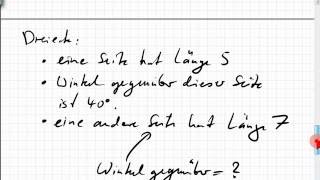 Dreieck:
• eine Seite hat Länge 5
• Winkel gegenüber dieser Seite
ist 40°.
• eine andere Seite hat Länge 7
Winkel gegenüber = ?